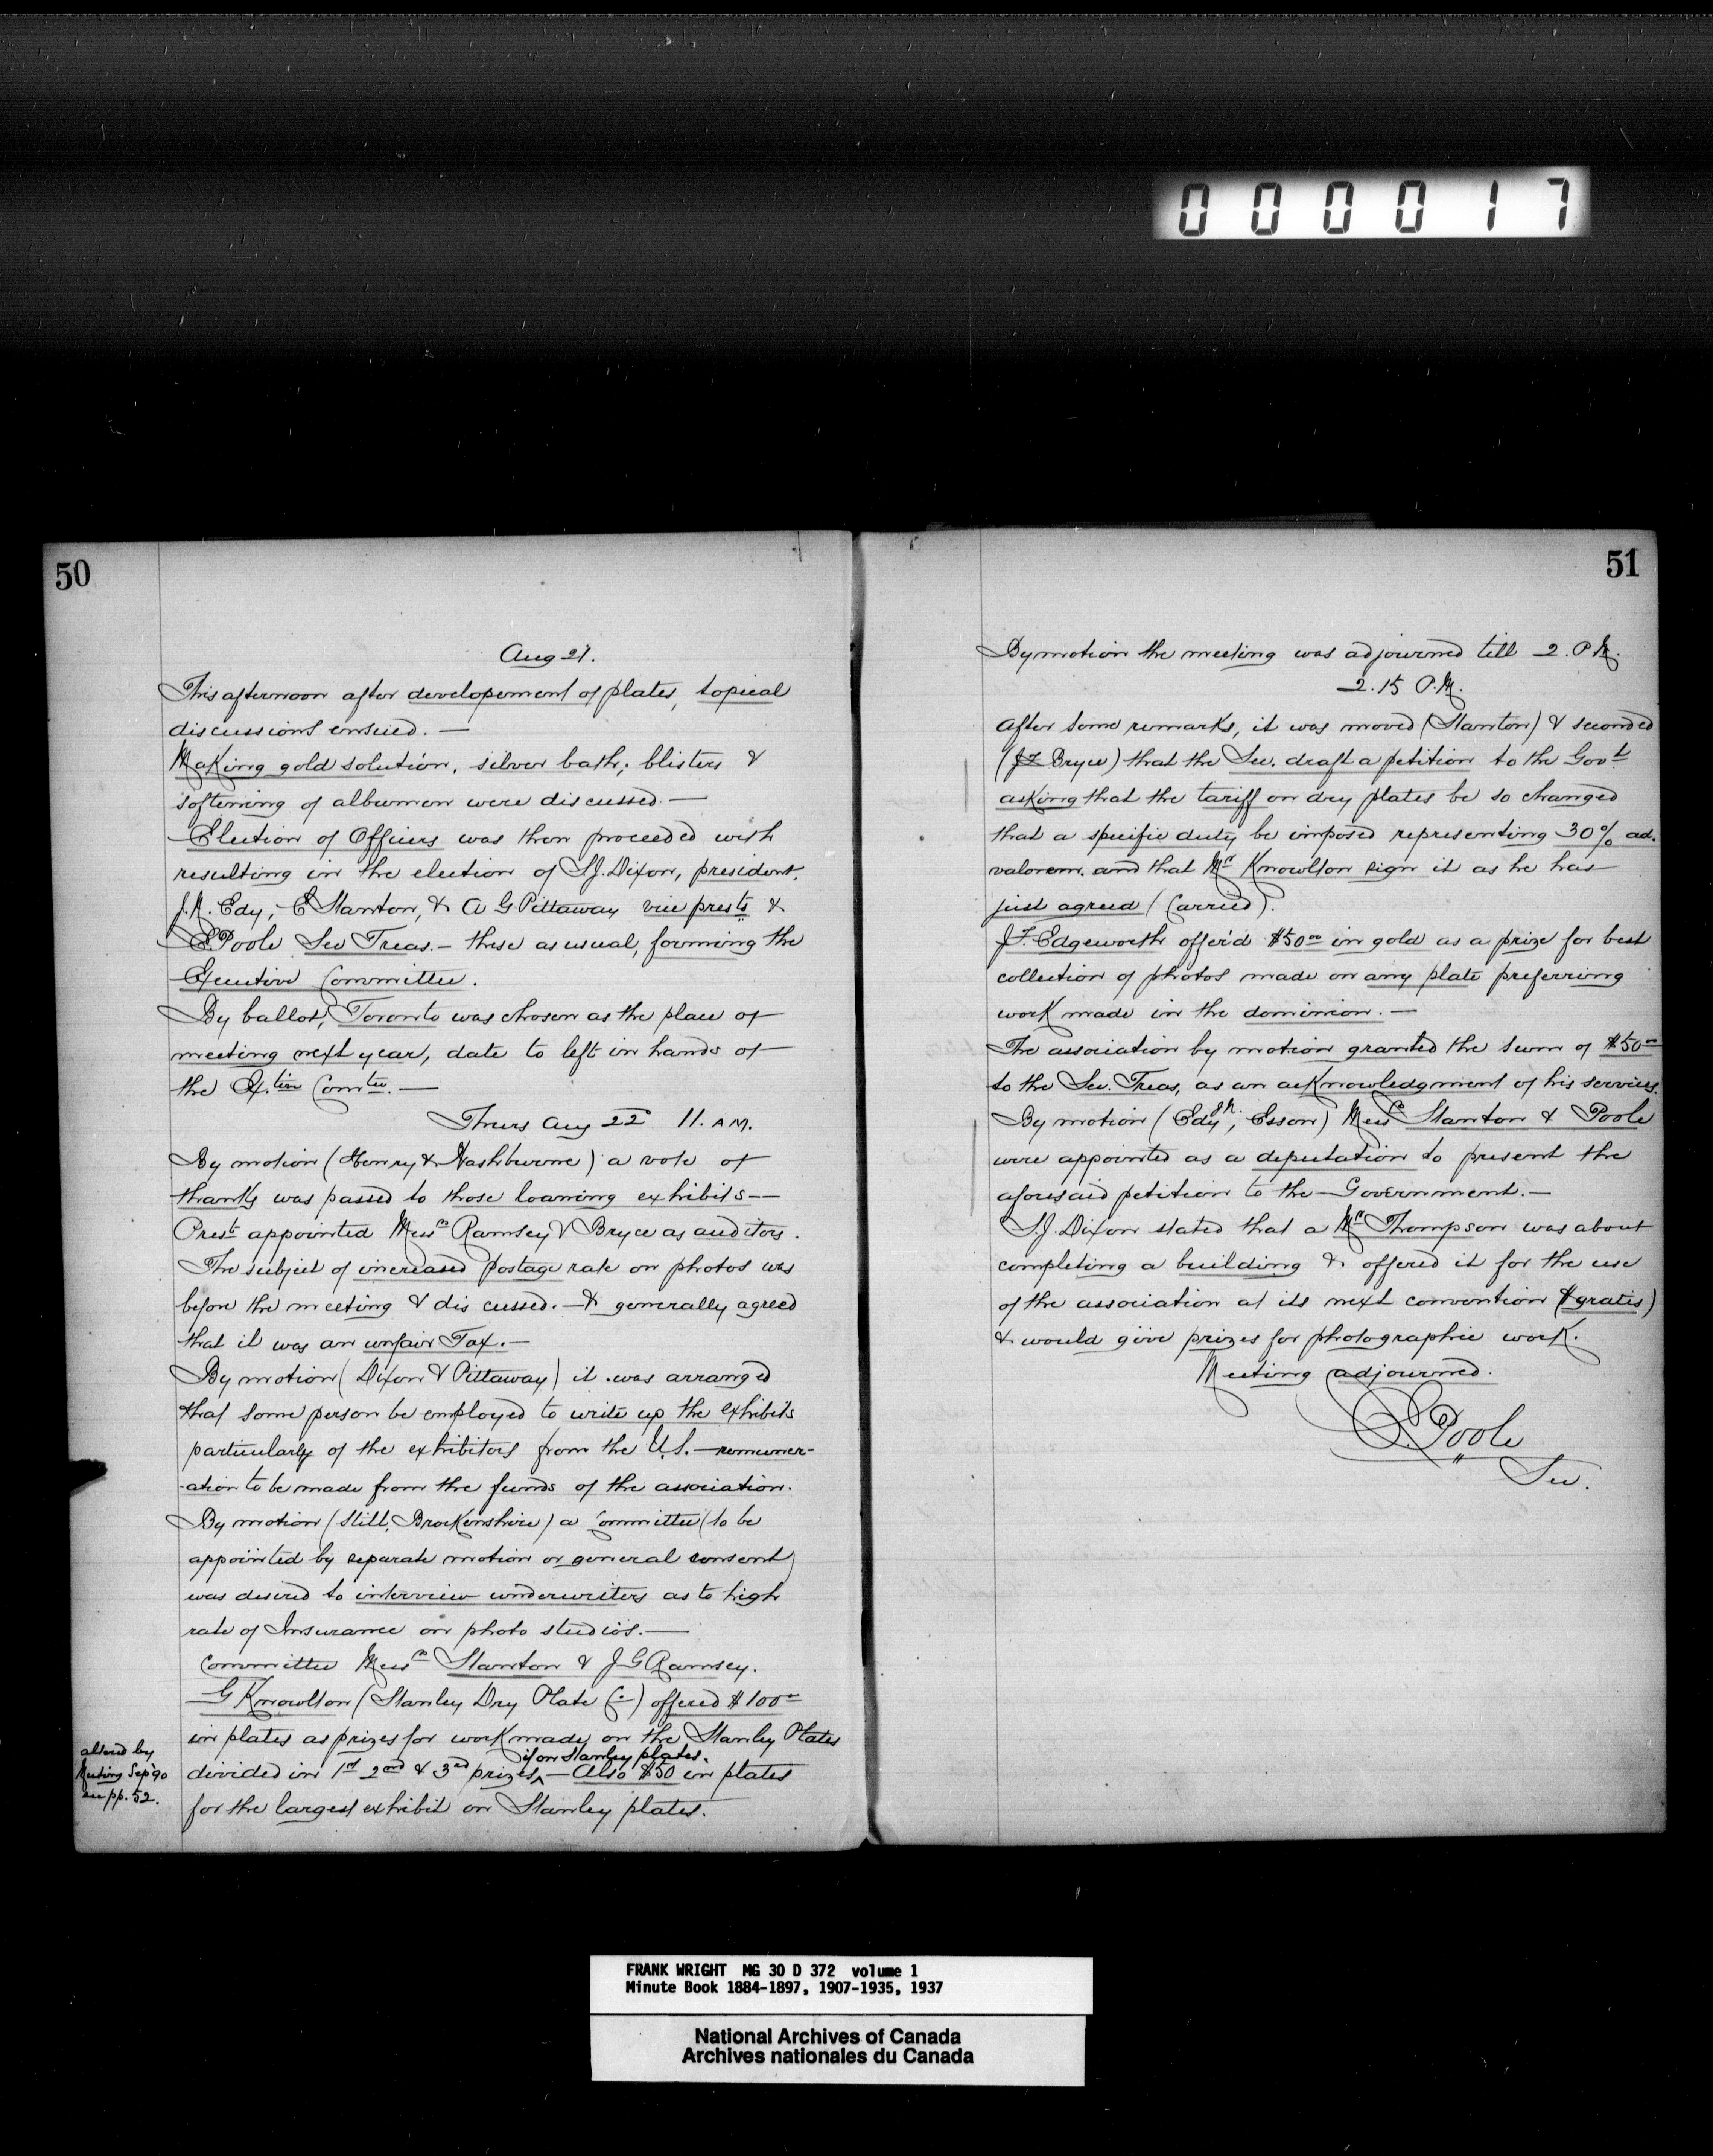 000017
50
Aug 21.
This afternoon after developement of plates, topical
discussions ensued. —
Making gold solution, silver bath; blisters &
softening of albumen were discussed. —
Election of Officers was then proceeded with
resulting in the election of S.J. Dixon, president.
J.N. Edy, E Stanton, & A G Pittaway vice prests &
E. Poole Sec Treas. — these as usual, forming the
Executive Committee.
By ballot, Toronto was chosen as the place of
meeting next year, date to left in hands of
the Ex.tive Comtee. —
Thurs Aug 22d 11. AM.
By motion (Henry & Washburne) a vote of
thanks was passed to those loaning exhibits —
Prest appointed Messrs Ramsey & Bryce as auditors.
The subject of increased postage rate on photos was
before the meeting & discussed. — & generally agreed
that it was an unfair Tax. —
By motion (Dixon & Pittaway) it was arranged
that some person be employed to write up the exhibits
particularly of the exhibitors from the U.S. — remuner-
ation to be made from the funds of the association.
By motion (Still, Brockenshire) a Committee (to be
appointed by separate motion or general consent)
was desired to interview underwriters as to high
rate of Insurance on photo studios. —
Committee Messrs Stanton & J G Ramsey.
G Knowlton (Stanley Dry Plate Co.) offered $100 00
in plates as prizes for work made on the Stanley Plates
if on Stanley plates.
divided in 1st 2nd & 3rd prizes ^ — Also $50 in plates
for the largest exhibit on Stanley plates.
altered by
Meeting Sep '90
see pp. 52.
51
By motion the meeting was adjourned till 2. P.M.
2.15 P.M.
After some remarks, it was moved (Stanton) & seconded
(J F Bryce) that the Sec. draft a petition to the Govt
asking that the tariff on dry plates be so changed
that a specific duty be imposed representing 30% ad.
valorem. and that Mr Knowlton sign it as he has
just agreed (Carried).
J.F. Edgeworth offer'd $50 00 in gold as a prize for best
collection of photos made on any plate preferring
work made in the dominion. —
The association by motion granted the sum of $50 00
to the Sec. Treas, as an acknowledgment of his services.
By motion (Edy J N., Esson) Messrs Stanton & Poole
were appointed as a deputation to present the
aforesaid petition to the Government. —
S.J. Dixon stated that a Mr Thompson was about
completing a building & offered it for the use
of the association at its next convention (gratis)
& would give prizes for photographic work.
Meeting adjourned.
E. Poole
Sec.
FRANK WRIGHT MG 30 D 372 volume 1
Minute Book 1884-1897, 1907-1935, 1937
National Archives of Canada
Archives nationales du Canada